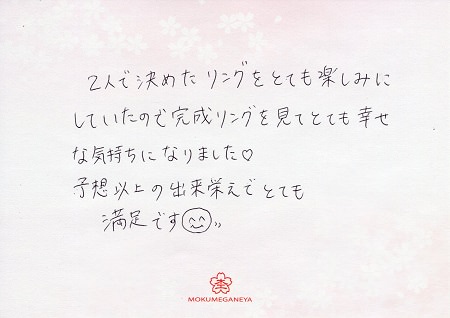 2人で決めたリングをとても楽しみに
していたので完成リングを見てとても幸せ
な気持ちになりました♡
予想以上の出来栄えでとても
満足です
MOKUMEGANEYA